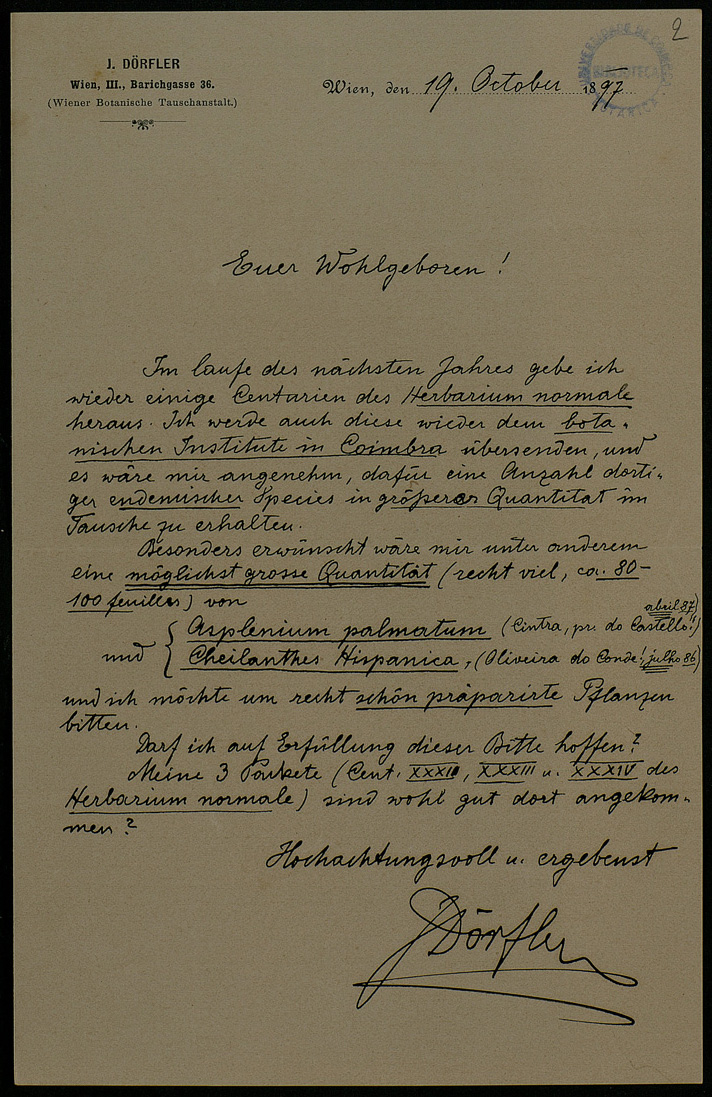 2
J. DÖRFLER
Wien, III., Barichgasse 36.
(Wiener Botanische Tauschanstalt.)
UNIVERSIDADE DE COIMBRA
BIBLIOTECA
BOTANICA
Wien, den 19. October 1897
Euer Wohlgeboren!
Im laufe des nächsten Jahres gebe ich
wieder einige Centurien des Herbarium normale
heraus. Ich werde auch diese wieder dem bota-
nischen Institute in Coimbra übersenden, und
es wäre mir angenehm, dafür eine Anzahl dorti-
ger endemischer Species in größerer Quantität im
Tausche zu erhalten.
Besonders erwünscht wäre mir unter anderem
eine möglichst grosse Quantität (recht viel, ca. 80-
100 feuilles) von
abril 87)
Asplenium palmatum (Cintra, pr. do Castello!)
und { Cheilanthes Hispanica, (Oliveira do Conde! julho 86)
und ich möchte um recht schön präparirte Pflanzen
bitten.
Darf ich auf Erfüllung dieser Bitte hoffen?
Meine 3 Packete (Cent. XXXII, XXXIII u. XXXIV des
Herbarium normale) sind wohl gut dort angekom-
men?
Hochachtungsvoll u. ergebenst
J Dörfler